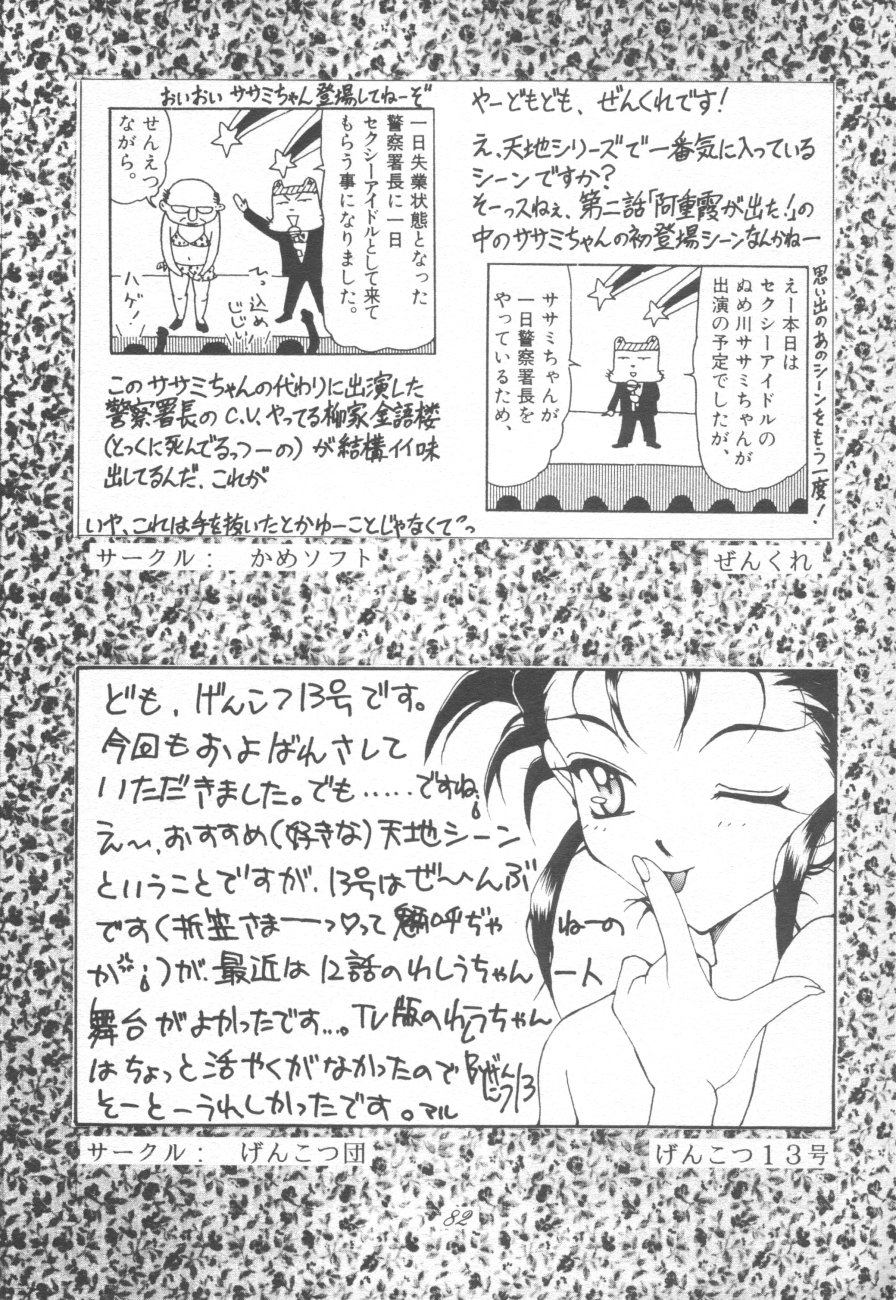 やーどもども、ぜんくれです!
え、天地シリーズで一番気に入っている
シーンですか?
そーっスねぇ、第二話「阿重霞が出た!」の
中のササミちゃんの初登場シーンなんかねー
思い出のあのシーンをもう一度!
えー本日は
セクシーアイドルの
ぬめ川ササミちゃんが
出演の予定でしたが、
ササミちゃんが
一日警察署長を
やっているため、
おいおい ササミちゃん登場してねーぞ
一日失業状態となった
警察署長に一日
セクシーアイドルとして来て
もらう事になりました。
せんえつ
ながら。
ひっ込め
じじい!
ハゲ!
このササミちゃんの代わりに出演した
警察署長のC.V.やってる柳家金語楼
(とっくに死んでるっつーの)が結構イイ味
出してるんだ、これが
いや、これは手を抜いたとかゆーことじゃなくてっ
サークル: かめソフト
ぜんくれ
ども、げんこつ13号です。
今回もおよばんさして
いただきました。でも……ですね、
え〜、おすすめ(好きな)天地シーン
ということですが、13号はぜ〜んぶ
です(折笠さまーっ♡って
ねーの
が)が、最近は12話のわしうちゃん
ート
舞台がよかったです…。TV版のわしうちゃん
はちょっと活やくがなかったので
そーとーうれしかったです。マル
げんこつ13
サークル: げんこつ団
げんこつ13号
82